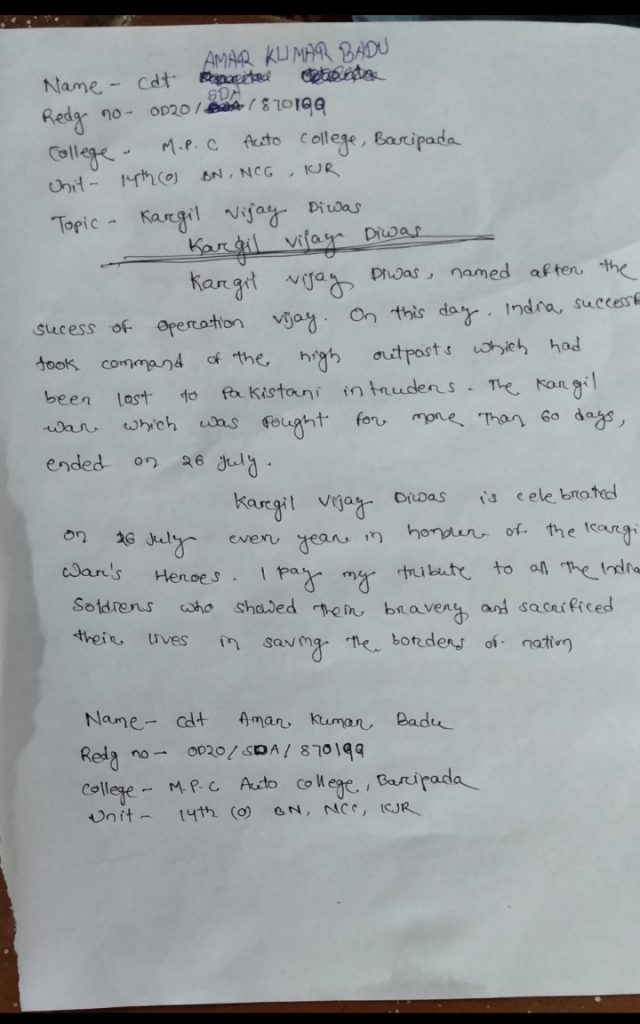 AMAR KUMAR BADU
Name - Cdt
SDA
Redg no - OD20/ /870199
College - M.P.C Auto College, Baripada
Unit - 14th (O) BN, NCC, KJR
Topic - Kargil Vijay Diwas
Kargil Vijay Diwas
Kargil Vijay Diwas, named after the
sucess of operation vijay. On this day. India, successf
took command of the high outposts which had
been lost to Pakistani intruders. The Kargil
war which was fought for more Than 60 days,
ended on 26 July.
Kargil Vijay Diwas is celebrated
on 26 July even year in honder of the Kargi
War's Heroes. I pay my tribute to all The India
Soldrens who showed Their bravery and sacrificed
their lives in saving the borders of nation
Name - Cdt Amar Kumar Badu
Redg no - OD20/SDA/870199
College - M.P.C Auto College, Baripada
Unit - 14th (O) BN, NCC, KJR